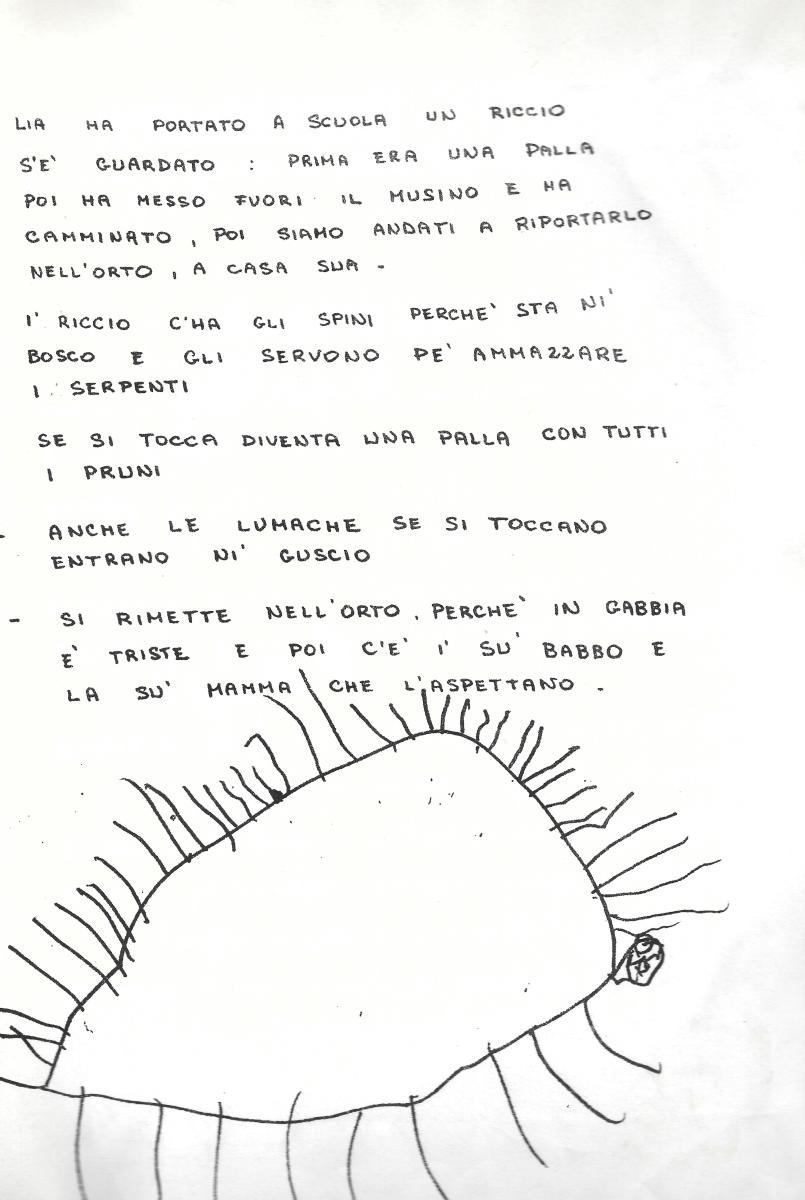 LIA HA PORTATO A SCUOLA UN RICCIO
S'E' GUARDATO : PRIMA ERA UNA PALLA
POI HA MESSO FUORI IL MUSINO E HA
CAMMINATO , POI SIAMO ANDATI A RIPORTARLO
NELL'ORTO , A CASA SUA -
I' RICCIO C'HA GLI SPINI PERCHE' STA NI'
BOSCO E GLI SERVONO PE' AMMAZZARE
I SERPENTI
SE SI TOCCA DIVENTA UNA PALLA CON TUTTI
I PRUNI
- ANCHE LE LUMACHE SE SI TOCCANO
ENTRANO NI' GUSCIO
- SI RIMETTE NELL'ORTO , PERCHE' IN GABBIA
E' TRISTE E POI C'E' I' SU' BABBO E
LA SU' MAMMA CHE L'ASPETTANO .